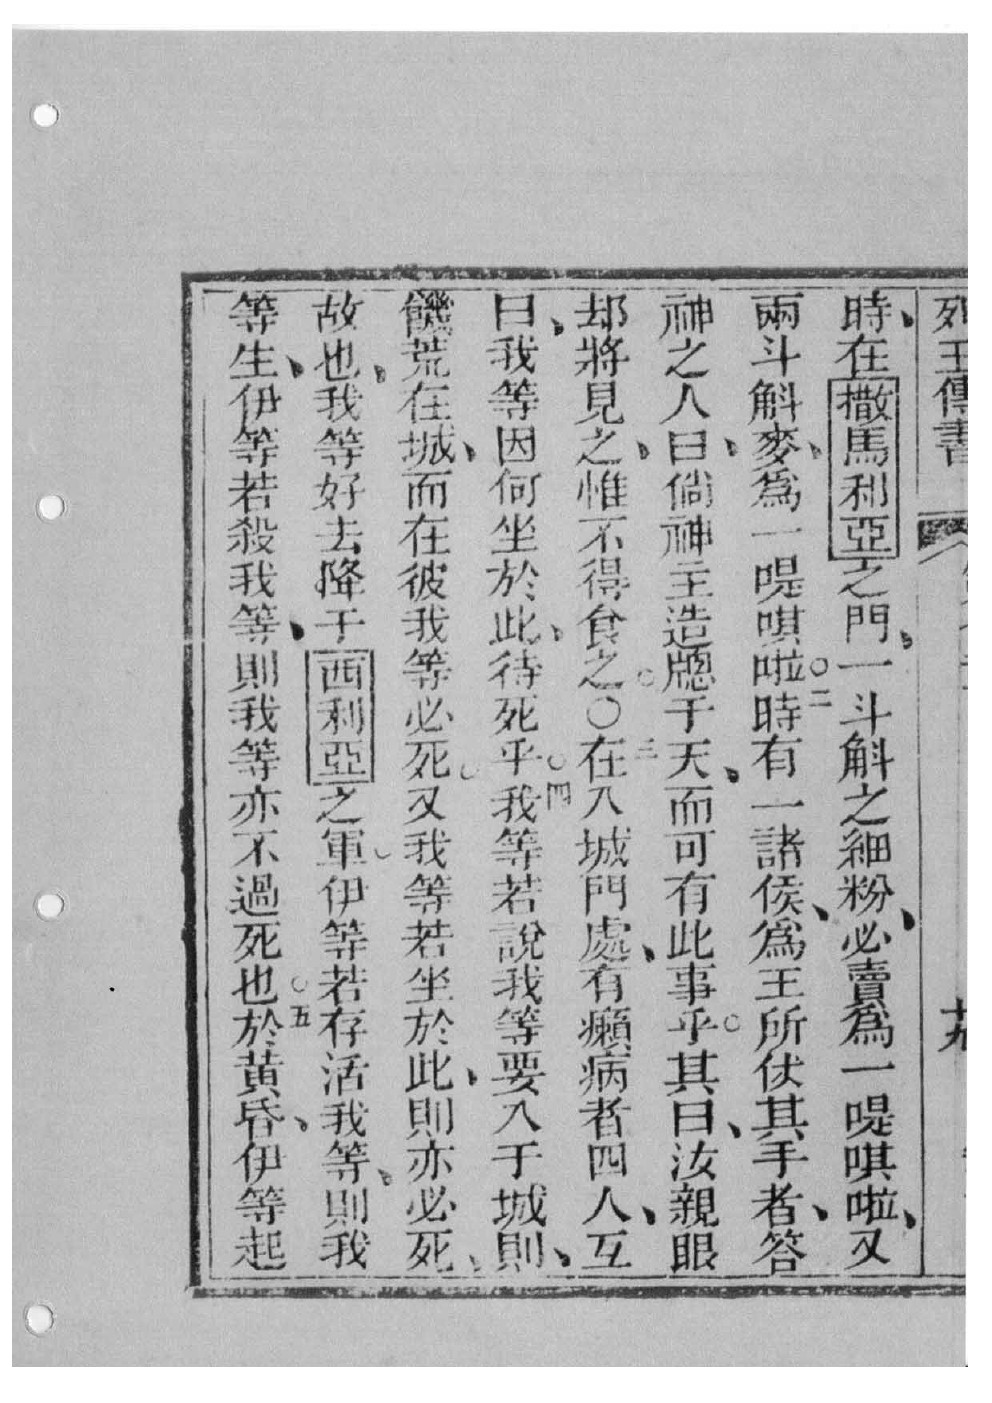 列王傳書
時、在撒馬利亞之門、一斗斛之細粉、必賣爲一㖷唭啦、又
兩斗斛麥、爲一㖷唭啦○二時有一諸侯、爲王所伏其手者、答
神之人、曰倘神主造牕于天、而可有此事乎○其曰、汝親眼
却將見之、惟不得食之○三〇在入城門處、有癩病者四人、互
曰、我等因何坐於此、待死乎○四我等若說我等要入于城、則
饑荒在城、而在彼我等必死○又我等若坐於此、則亦必死、
故也、我等好去降于西利亞之軍○伊等若存活我等、則我
等生、伊等若殺我等、則我等亦不過死也○五於黃昏、伊等起